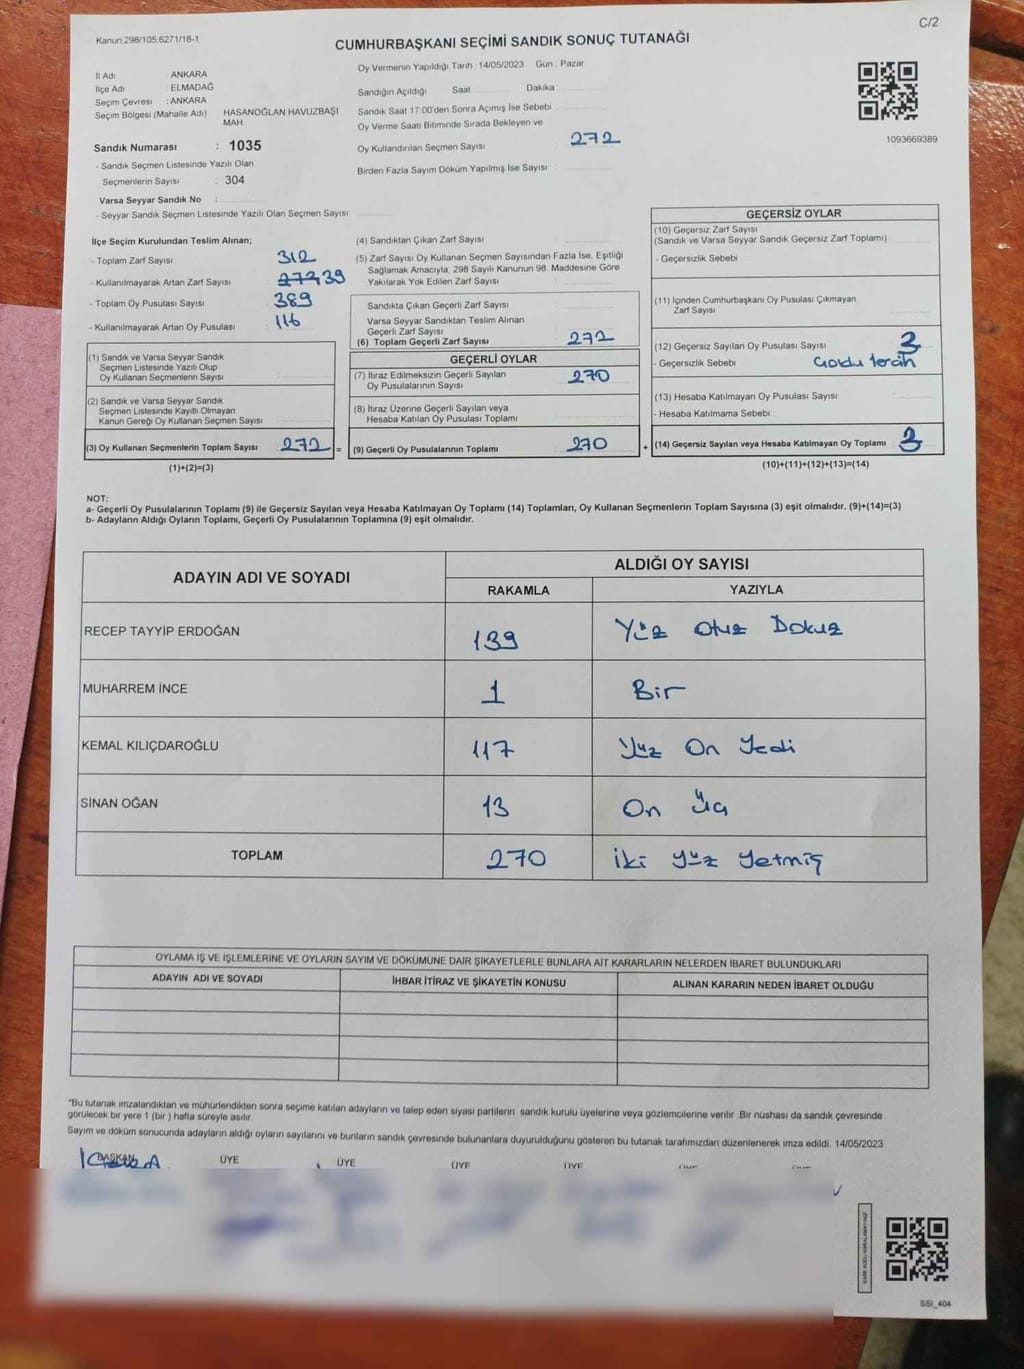 C/2
Kanun 298/105,6271/18-1
CUMHURBAŞKANI SEÇİMİ SANDIK SONUÇ TUTANAĞI
İl Adı ANKARA
İlçe Adı : ELMADAĞ
Seçim Çevresi : ANKARA
Seçim Bölgesi (Mahalle Adı) HASANOĞLAN HAVUZBAŞI MAH.
Sandık Numarası : 1035
- Sandık Seçmen Listesinde Yazılı Olan
Seçmenlerin Sayısı : 304
Varsa Seyyar Sandık No :
- Seyyar Sandık Seçmen Listesinde Yazılı Olan Seçmen Sayısı
Oy Vermenin Yapıldığı Tarih : 14/05/2023 Gün : Pazar
Sandığın Açıldığı Saat Dakika
Sandık Saat 17:00'den Sonra Açımış İse Sebebi
Oy Verme Saati Bitiminde Sırada Bekleyen ve
Oy Kullandırılan Seçmen Sayısı 272
Birden Fazla Sayım Döküm Yapılmış İse Sayısı
1093669389
İlçe Seçim Kurulundan Teslim Alınan;
- Toplam Zarf Sayısı 312
- Kullanılmayarak Artan Zarf Sayısı 39
- Toplam Oy Pusulası Sayısı 389
- Kullanılmayarak Artan Oy Pusulası 116
(1) Sandık ve Varsa Seyyar Sandık
Seçmen Listesinde Yazılı Olup
Oy Kullanan Seçmenlerin Sayısı
(2) Sandık ve Varsa Seyyar Sandık
Seçmen Listesinde Kayıtlı Olmayan
Kanun Gereği Oy Kullanan Seçmen Sayısı
(3) Oy Kullanan Seçmenlerin Toplam Sayısı 272 =
(1)+(2)=(3)
(4) Sandıktan Çıkan Zarf Sayısı
(5) Zarf Sayısı Oy Kullanan Seçmen Sayısından Fazla İse, Eşitliği
Sağlamak Amacıyla, 298 Sayılı Kanunun 98. Maddesine Göre
Yakılarak Yok Edilen Zarf Sayısı
Sandıkta Çıkan Geçerli Zarf Sayısı
Varsa Seyyar Sandıktan Teslim Alınan
Geçerli Zarf Sayısı
(6) Toplam Geçerli Zarf Sayısı 272
GEÇERLİ OYLAR
(7) İtiraz Edilmeksizin Geçerli Sayılan
Oy Pusulalarının Sayısı 270
(8) İtiraz Üzerine Geçerli Sayılan veya
Hesaba Katılan Oy Pusulası Toplamı
(9) Geçerli Oy Pusulalarının Toplamı 270 +
GEÇERSİZ OYLAR
(10) Geçersiz Zarf Sayısı
(Sandık ve Varsa Seyyar Sandık Geçersiz Zarf Toplamı)
- Geçersizlik Sebebi
(11) İçinden Cumhurbaşkanı Oy Pusulası Çıkmayan
Zarf Sayısı
(12) Geçersiz Sayılan Oy Pusulası Sayısı
- Geçersizlik Sebebi tercih
(13) Hesaba Katılmayan Oy Pusulası Sayısı
- Hesaba Katılmama Sebebi
(14) Geçersiz Sayılan veya Hesaba Katılmayan Oy Toplamı
(10)+(11)+(12)+(13)=(14)
NOT:
a- Geçerli Oy Pusulalarının Toplamı (9) ile Geçersiz Sayılan veya Hesaba Katılmayan Oy Toplamı (14) Toplamları, Oy Kullanan Seçmenlerin Toplam Sayısına (3) eşit olmalıdır. (9)+(14)=(3)
b- Adayların Aldığı Oyların Toplamı, Geçerli Oy Pusulalarının Toplamına (9) eşit olmalıdır.
ADAYIN ADI VE SOYADI
ALDIĞI OY SAYISI
RAKAMLA YAZIYLA
RECEP TAYYİP ERDOĞAN 139 Yüz Otuz Dokuz
MUHARREM İNCE 1 Bir
KEMAL KILIÇDAROĞLU 117 Yüz On Yedi
SİNAN OĞAN 13 On Üç
TOPLAM 270 İki Yüz Yetmiş
OYLAMA İŞ VE İŞLEMLERİNE VE OYLARIN SAYIM VE DÖKÜMÜNE DAİR ŞİKAYETLERLE BUNLARA AİT KARARLARIN NELERDEN İBARET BULUNDUKLARI
ADAYIN ADI VE SOYADI İHBAR İTİRAZ VE ŞİKAYETİN KONUSU ALINAN KARARIN NEDEN İBARET OLDUĞU
*Bu tutanak imzalandıktan ve mühürlendikten sonra seçime katılan adayların ve talep eden siyasi partilerin sandık kurulu üyelerine veya gözlemcilerine verilir. Bir nüshası da sandık çevresinde
görülecek bir yere 1 (bir) hafta süreyle asılır.
Sayım ve döküm sonucunda adayların aldığı oyların sayılarını ve bunların sandık çevresinde bulunanlara duyurulduğunu gösteren bu tutanak tarafımızdan düzenlenerek imza edildi. 14/05/2023
BAŞKAN ÜYE ÜYE ÜYE ÜYE
SSI_404